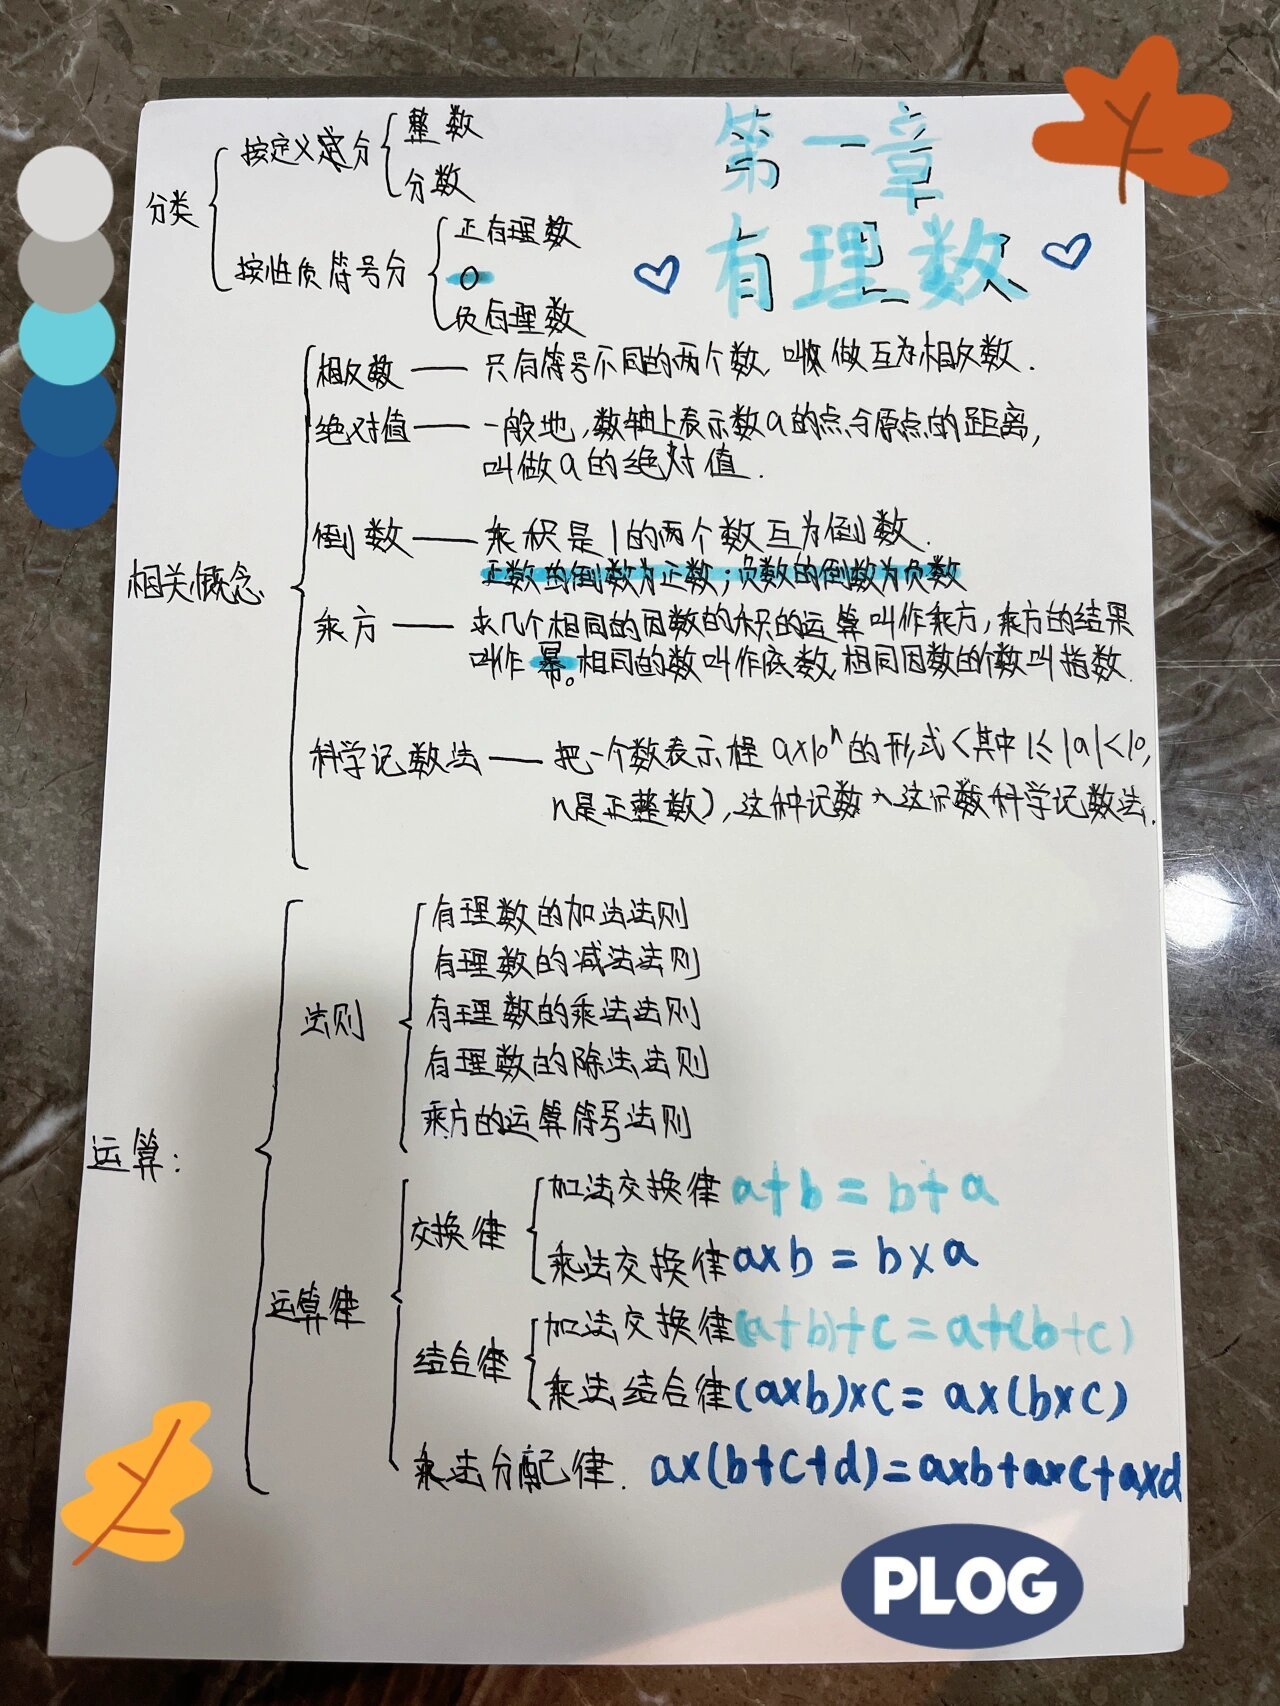 第一章
有理数
分类
按定义分
整数
分数
按性质符号分
正有理数
0
负有理数
相关概念
相反数——只有符号不同的两个数,叫做互为相反数.
绝对值——一般地,数轴上表示数a的点与原点的距离,
叫做a的绝对值.
倒数——乘积是1的两个数互为倒数.
正数的倒数为正数;负数的倒数为负数
乘方——求几个相同的因数的积的运算叫作乘方,乘方的结果
叫作幂。相同的数叫作底数,相同因数的个数叫指数.
科学记数法——把一个数表示程a×10ⁿ的形式<其中1≤|a|<10,
n是正整数),这种记数入这记数科学记数法.
运算:
法则
有理数的加法法则
有理数的减法法则
有理数的乘法法则
有理数的除法法则
乘方的运算符号法则
运算律
交换律
加法交换律a+b=b+a
乘法交换律a×b=b×a
结合律
加法交换律(a+b)+c=a+(b+c)
乘法结合律(a×b)×c=a×(b×c)
乘法分配律. a×(b+c+d)=a×b+a×c+a×d
PLOG